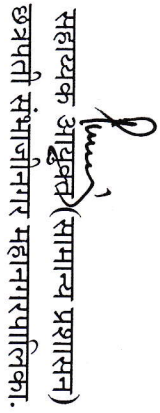 सहाय्यक आयुक्त (सामान्य प्रशासन)
छत्रपती संभाजीनगर महानगरपालिका.